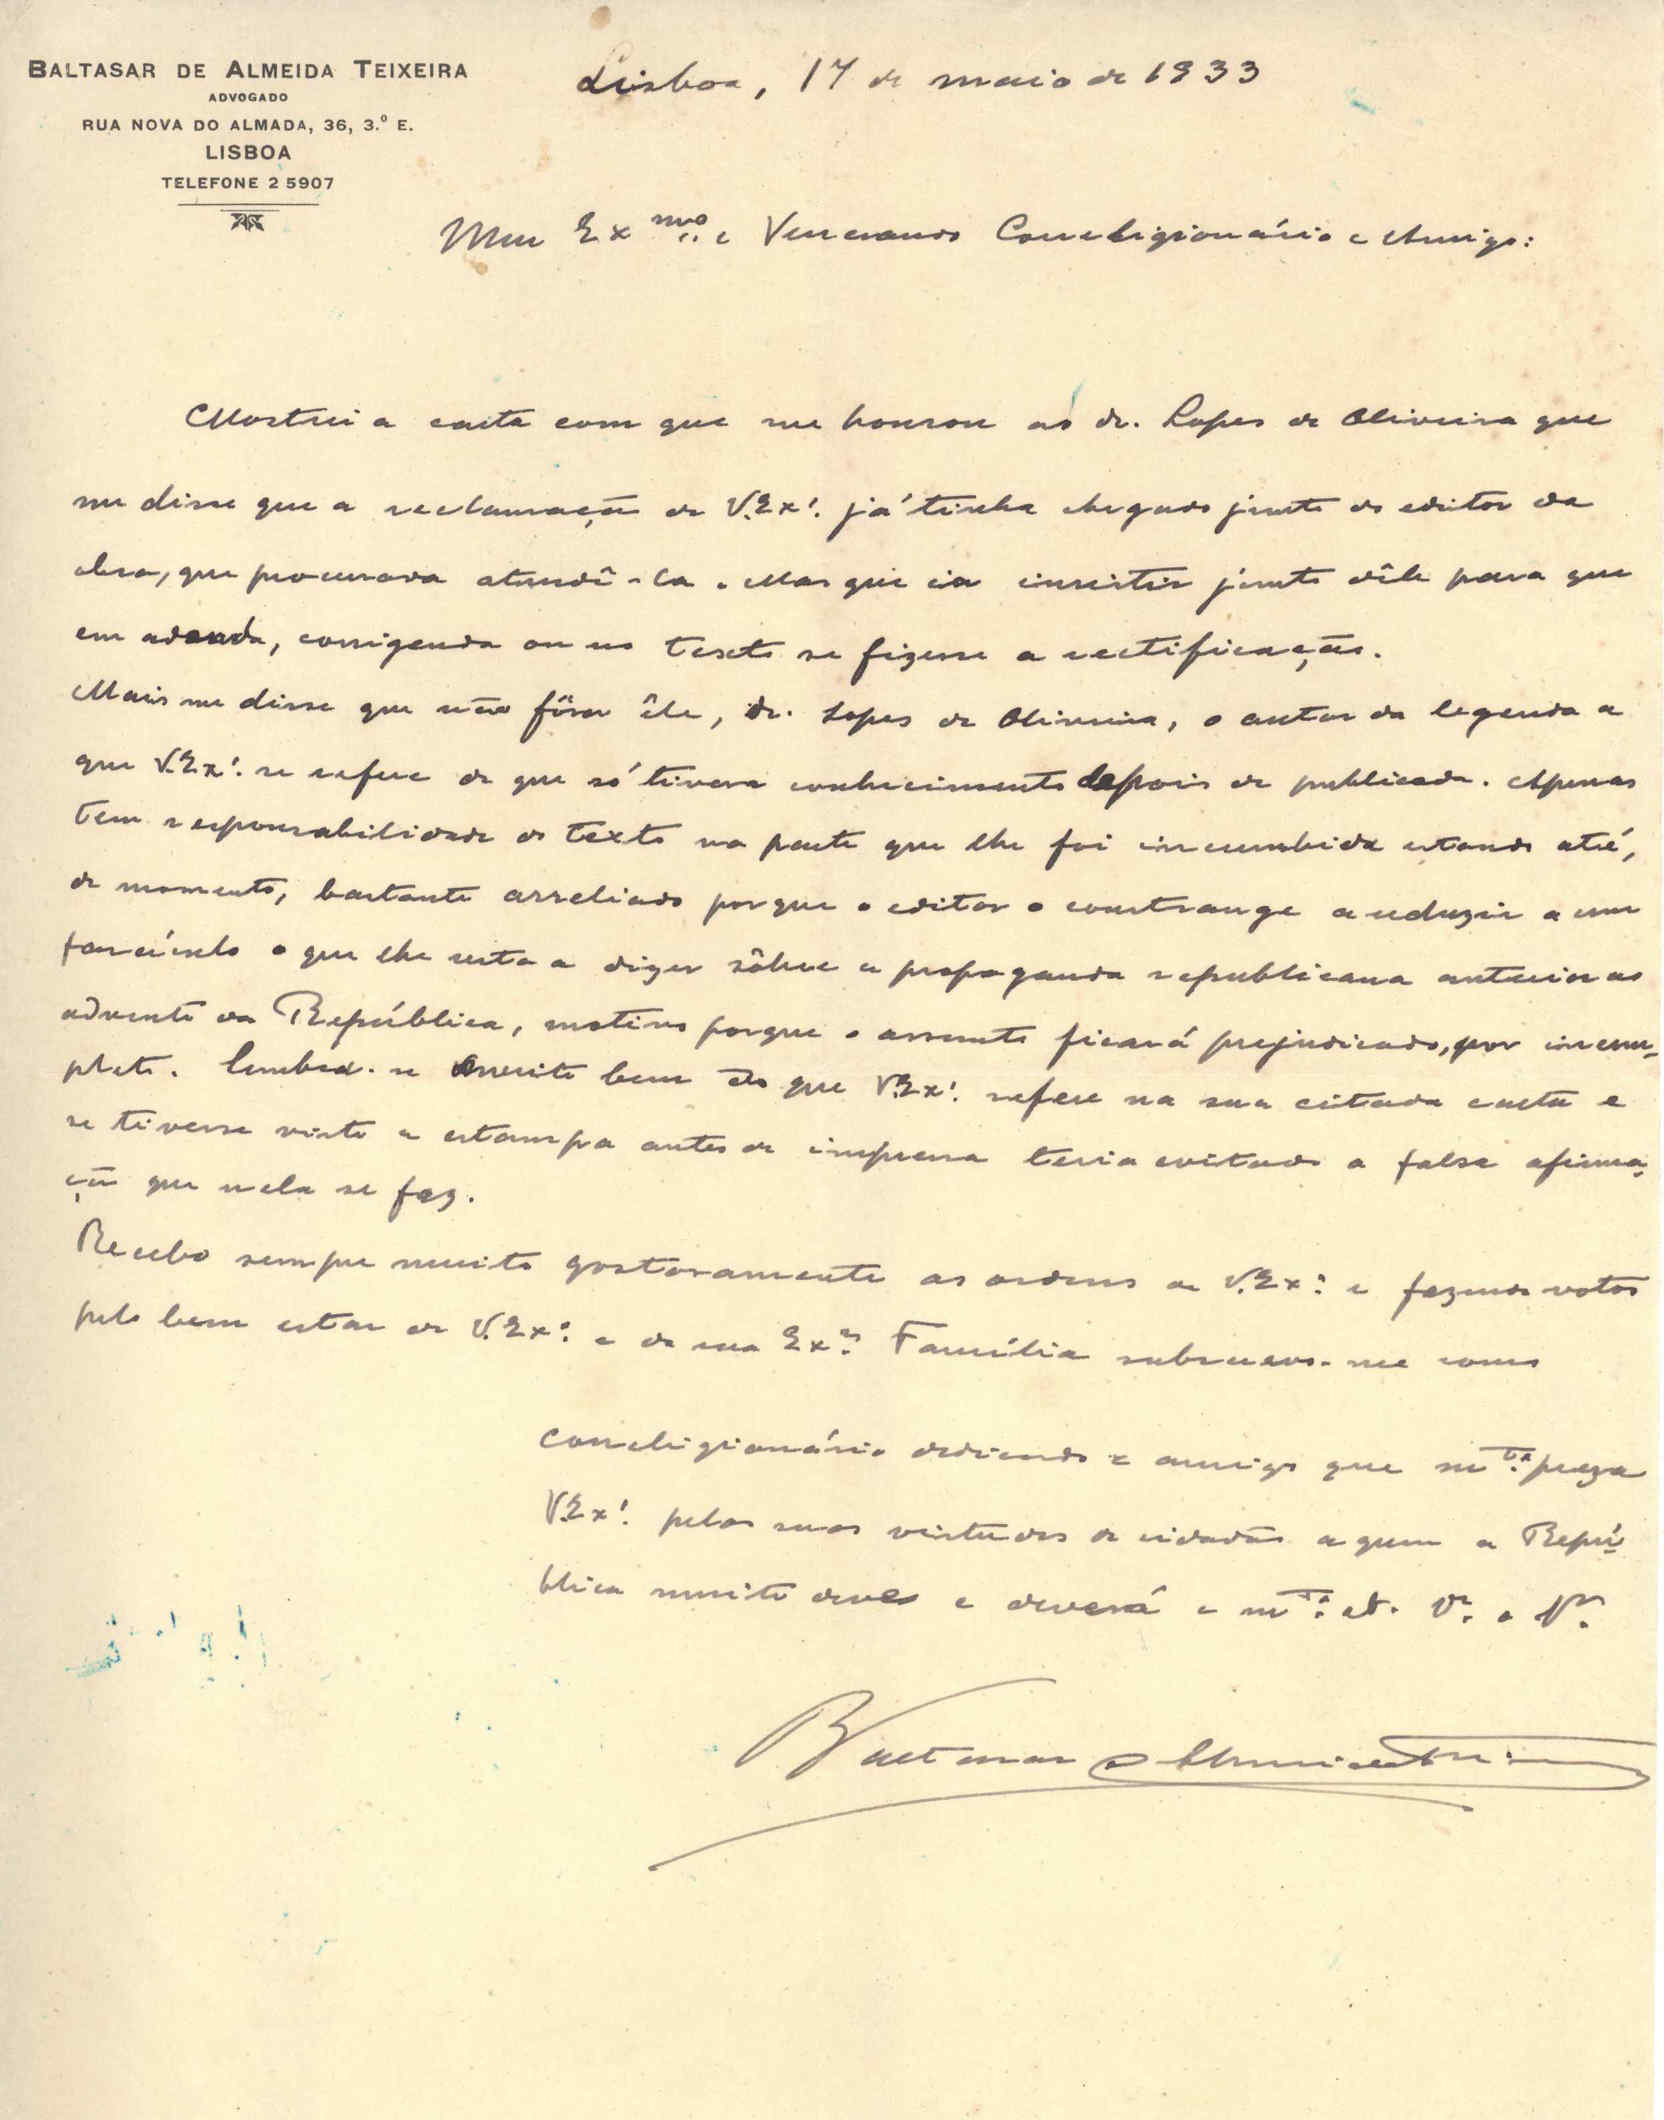 BALTASAR DE ALMEIDA TEIXEIRA
ADVOGADO
RUA NOVA DO ALMADA, 36, 3.º E.
LISBOA
TELEFONE 2 5907
Lisboa, 17 de maio de 1933
Meu Exmo. e Venerando Correligionário e Amigo:
Mostrei a carta com que me honrou ao dr. Lopes de Oliveira que
me disse que a reclamação de V. Exª. já tinha chegado junto do editor da
obra, que procurava atendê-la. Mas que ia insistir junto dêle para que
em adenda, corrigenda ou no texto se fizesse a rectificação.
Mais me disse que não fôra êle, dr. Lopes de Oliveira, o autor da legenda a
que V. Exª. se refere de que só tivera conhecimento depois de publicada. Apenas
tem responsabilidade do texto na parte que lhe foi incumbida estando até,
de momento, bastante arreliado porque o editor o constrange a reduzir a um
fascículo o que lhe resta a dizer sôbre a propaganda republicana anterior ao
advento da República, motivo porque o assunto ficará prejudicado, por incom-
pleto. Lembra-se muito bem do que V. Exª. refere na sua citada carta e
se tivesse visto a estampa antes de impressa teria evitado a falsa afirma-
ção que nela se faz.
Recebo sempre muito gostosamente as ordens de V. Exª. e fazendo votos
pelo bem estar de V. Exª. e de sua Exª. Família subscrevo-me como
correligionário dedicado e amigo que mtº. preza
V. Exª. pelas suas virtudes de cidadão a quem a Repú-
blica muito deve e deverá e mtº. at. Vr. e
Baltasar d'Almeida Teixeira